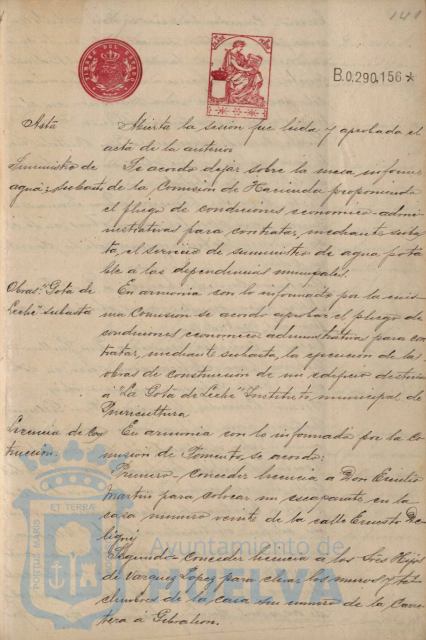 141
TIMBRE DEL ESTADO
B.0.290.156*
Acta Abierta la sesión fue leida y aprobada el
acta de la anterior
Suministro de Se acordo dejar sobre la mesa, informe
agua; subasta de la Comisión de Hacienda proponiendo
el pliego de condiciones economico-admi-
nistrativas para contratar, mediante subas-
ta, el servicio de suministro de agua pota
ble a las dependencias municipales.
Obras "Gota de En armonia con lo informado por la mis-
Leche" subasta ma Comisión se acordo aprobar el pliego de
condiciones economico administrativas para con
tratar, mediante subasta, la ejecución de las
obras de construcción de un edificio destinado
á "La Gota de Leche" Instituto municipal de
Puericultura
Licencia de Cons En armonia con lo informado por la Co
trucción. misión de Fomento, se acordo:
Primero - Conceder licencia a Don Emilio
Martin para colocar un escaparate en la
casa numero veinte de la calle Ernesto De-
ligni
Segundo - Conceder licencia a los Sres Hijos
de Vazquez Lopez para elevar los muros y te-
chumbres de la casa sin numero de la Carre
tera á Gibraleon.
PORTUS MARIS ET TERRAE
Ayuntamiento de
HUELVA